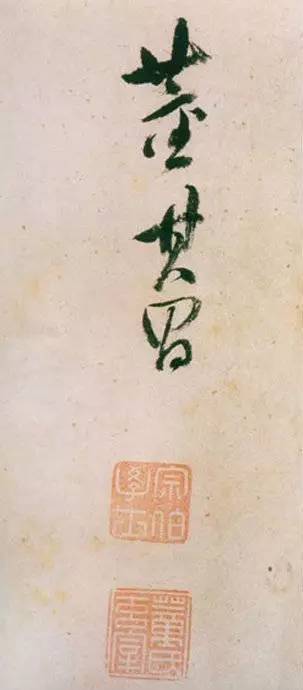 董其昌
宗伯學士
董氏玄宰